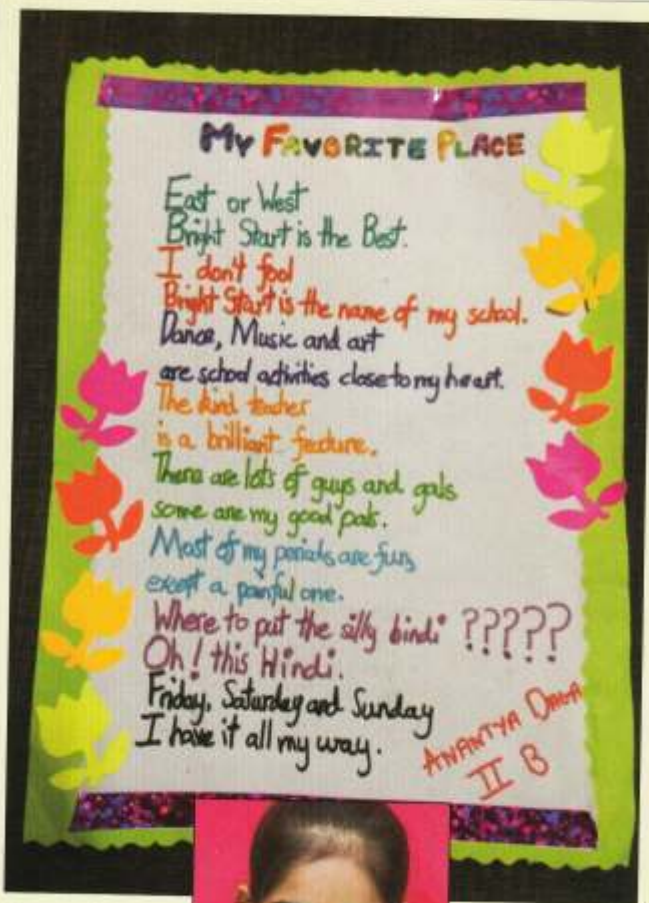 My Favorite Place
East or West
Bright Start is the Best.
I don't fool
Bright Start is the name of my school.
Dance, Music and art
are school activities close to my heart.
The kind teacher
is a brilliant feacture.
There are lots of guys and gals
some are my good pals.
Most of my periods are fun,
except a painful one.
Where to put the silly bindi ?????
Oh! this Hindi.
Friday, Saturday and Sunday
I have it all my way.
ANANTYA DAGA
II B